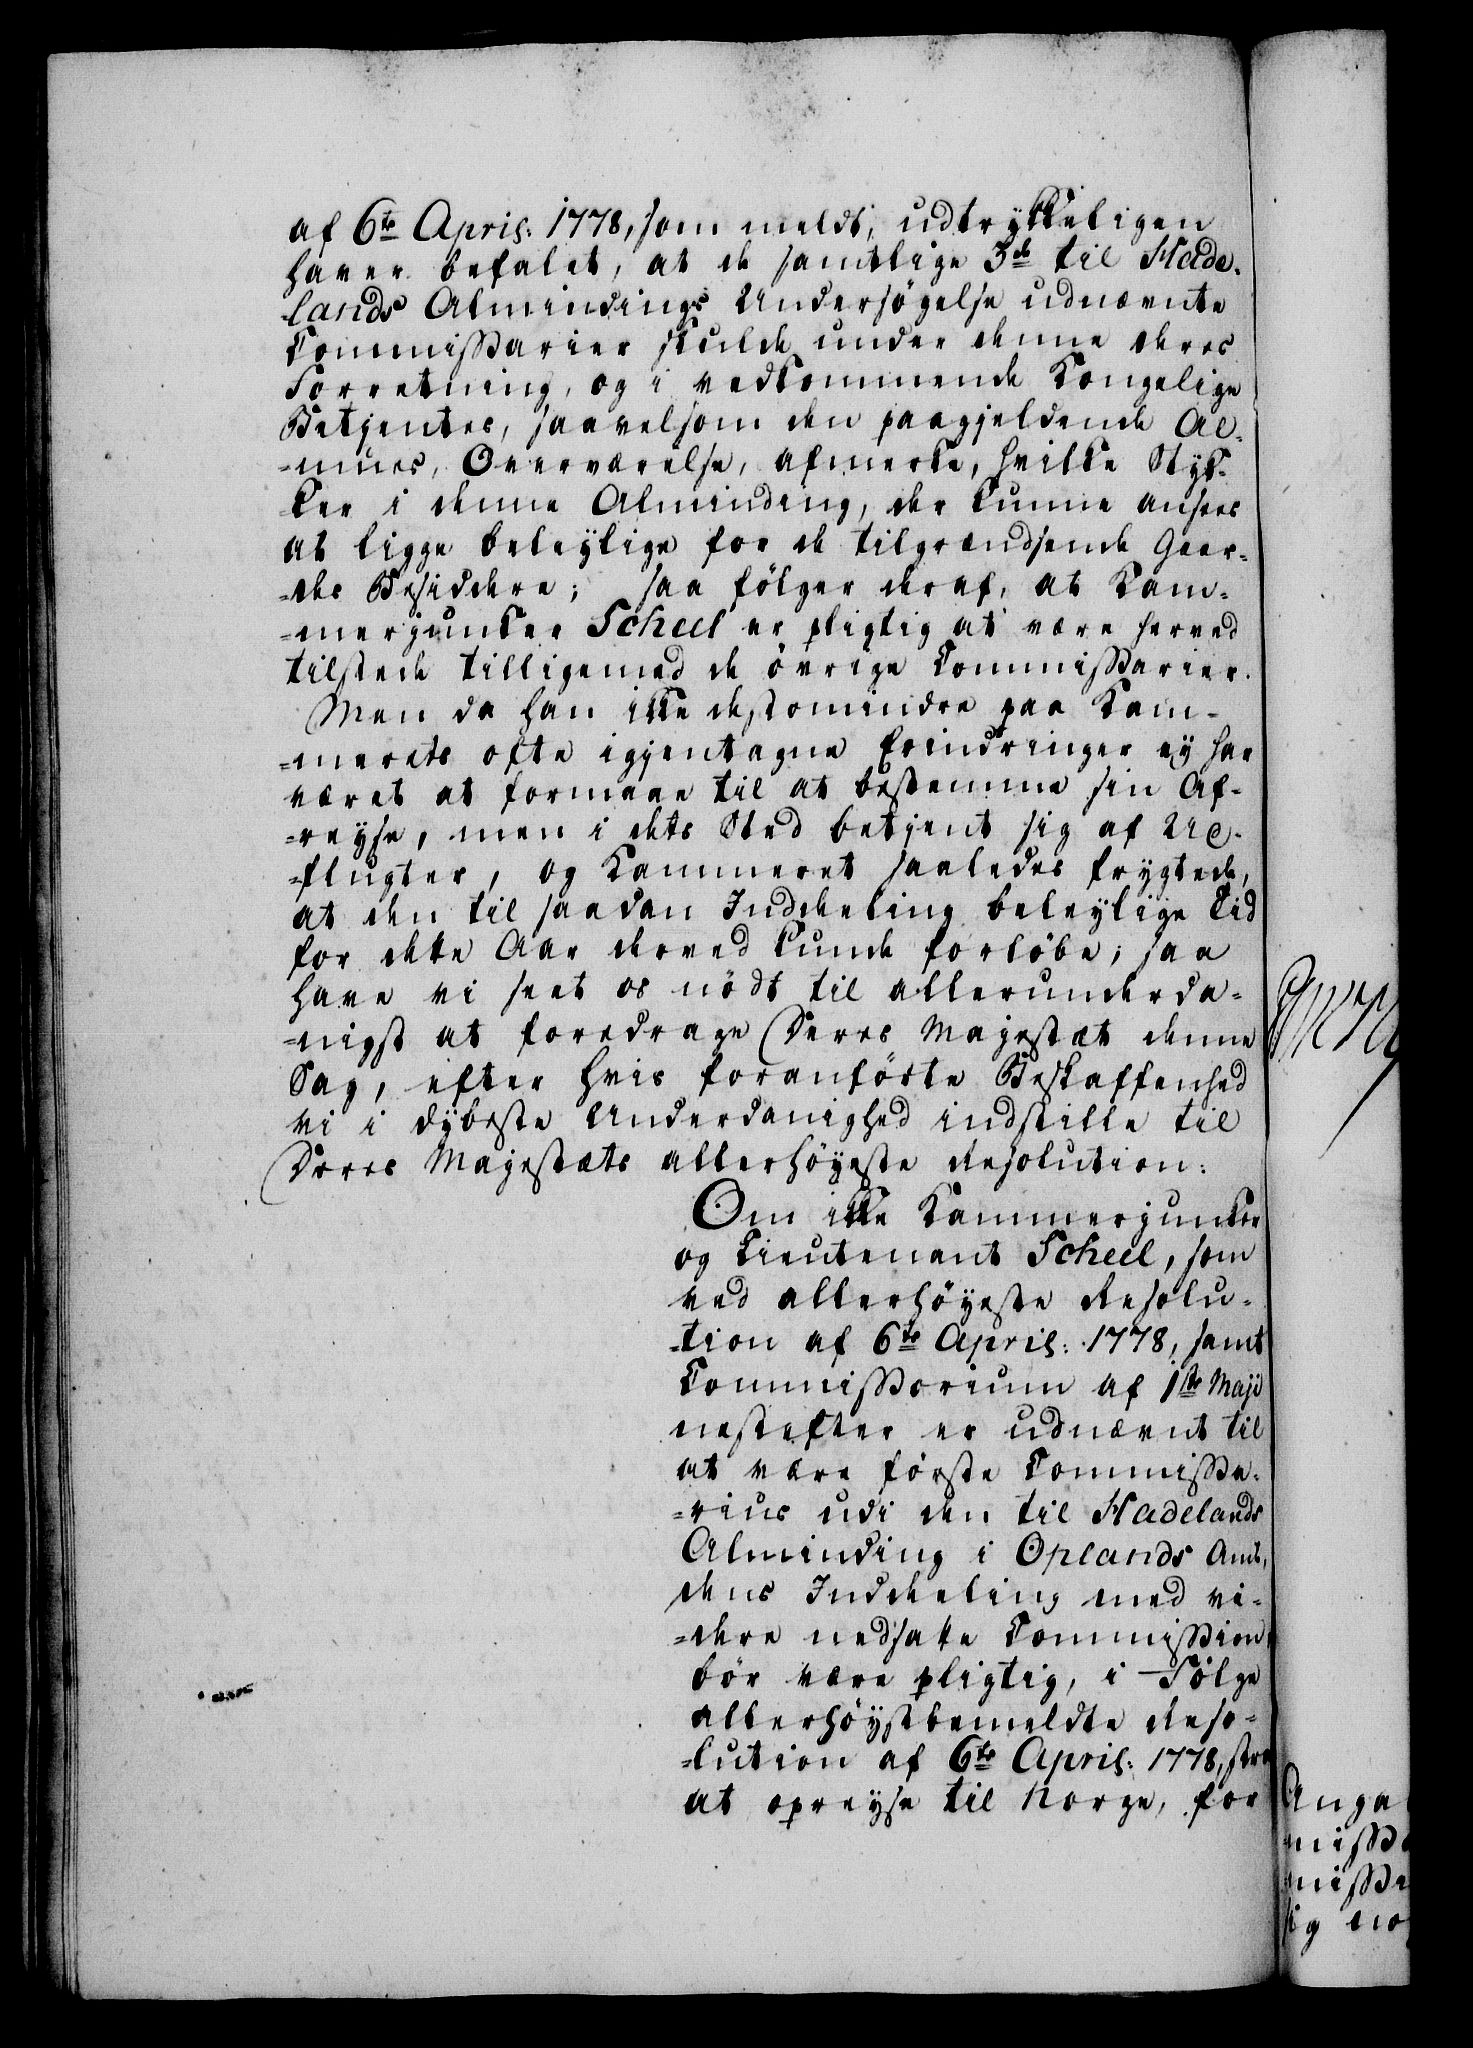 af 6te April: 1778, som meldt, udtrykkeligen
haver befalet, at de samtlige 3de til Hade-
lands Almindings Undersögelse udnævnte
Commissarier skulde under denne deres
Forretning, og i vedkommende Kongelige
Betjentes, saavelsom den paagjeldende Al-
=mues, Overværelse, afmerke, hvilke Styk-
ker i denne Alminding, der kunne ansees
at ligge beleylige for de tilgrændsende Gaar-
=des Besiddere; saa fölger deraf, at Kam-
=merjunker Scheel er pligtig at være herved
tilstede tilligemed de övrige Commissarier.
Men da han ikke destomindre paa Kam-
=merets ofte igjentagne Erindringer ey har
været at formaae til at bestemme sin Af-
=reyse, men i dets Sted betjent sig af Ud-
=flugter, og Kammeret saaledes frygtede,
at den til saadan Inddeeling beleylige Tid
for dette Aar derved kunde forlöbe; saa
have vi seet os nödt til allerunderda-
=nigst at foredrage Deres Majestæt denne
Sag, efter hvis foranförte Beskaffenhed
vi i dybeste Underdanighed indstille til
Deres Majestæts allerhöyeste Resolution:
Om ikke Kammerjunker
og Lieutenant Scheel, som
ved allerhöyeste Resolu-
=tion af 6te April: 1778, samt
Commissorium af 1ste Maji
nestefter er udnævnt til
at være förste Commissa-
=rius udi den til Hadelands
Alminding i Oplands Amt,
dens Inddeeling med vi-
=dere nedsatte Commission,
bör være pligtig, i Fölge
allerhöystbemeldte Reso-
=lution af 6te April: 1778, strax
at opreyse til Norge, for